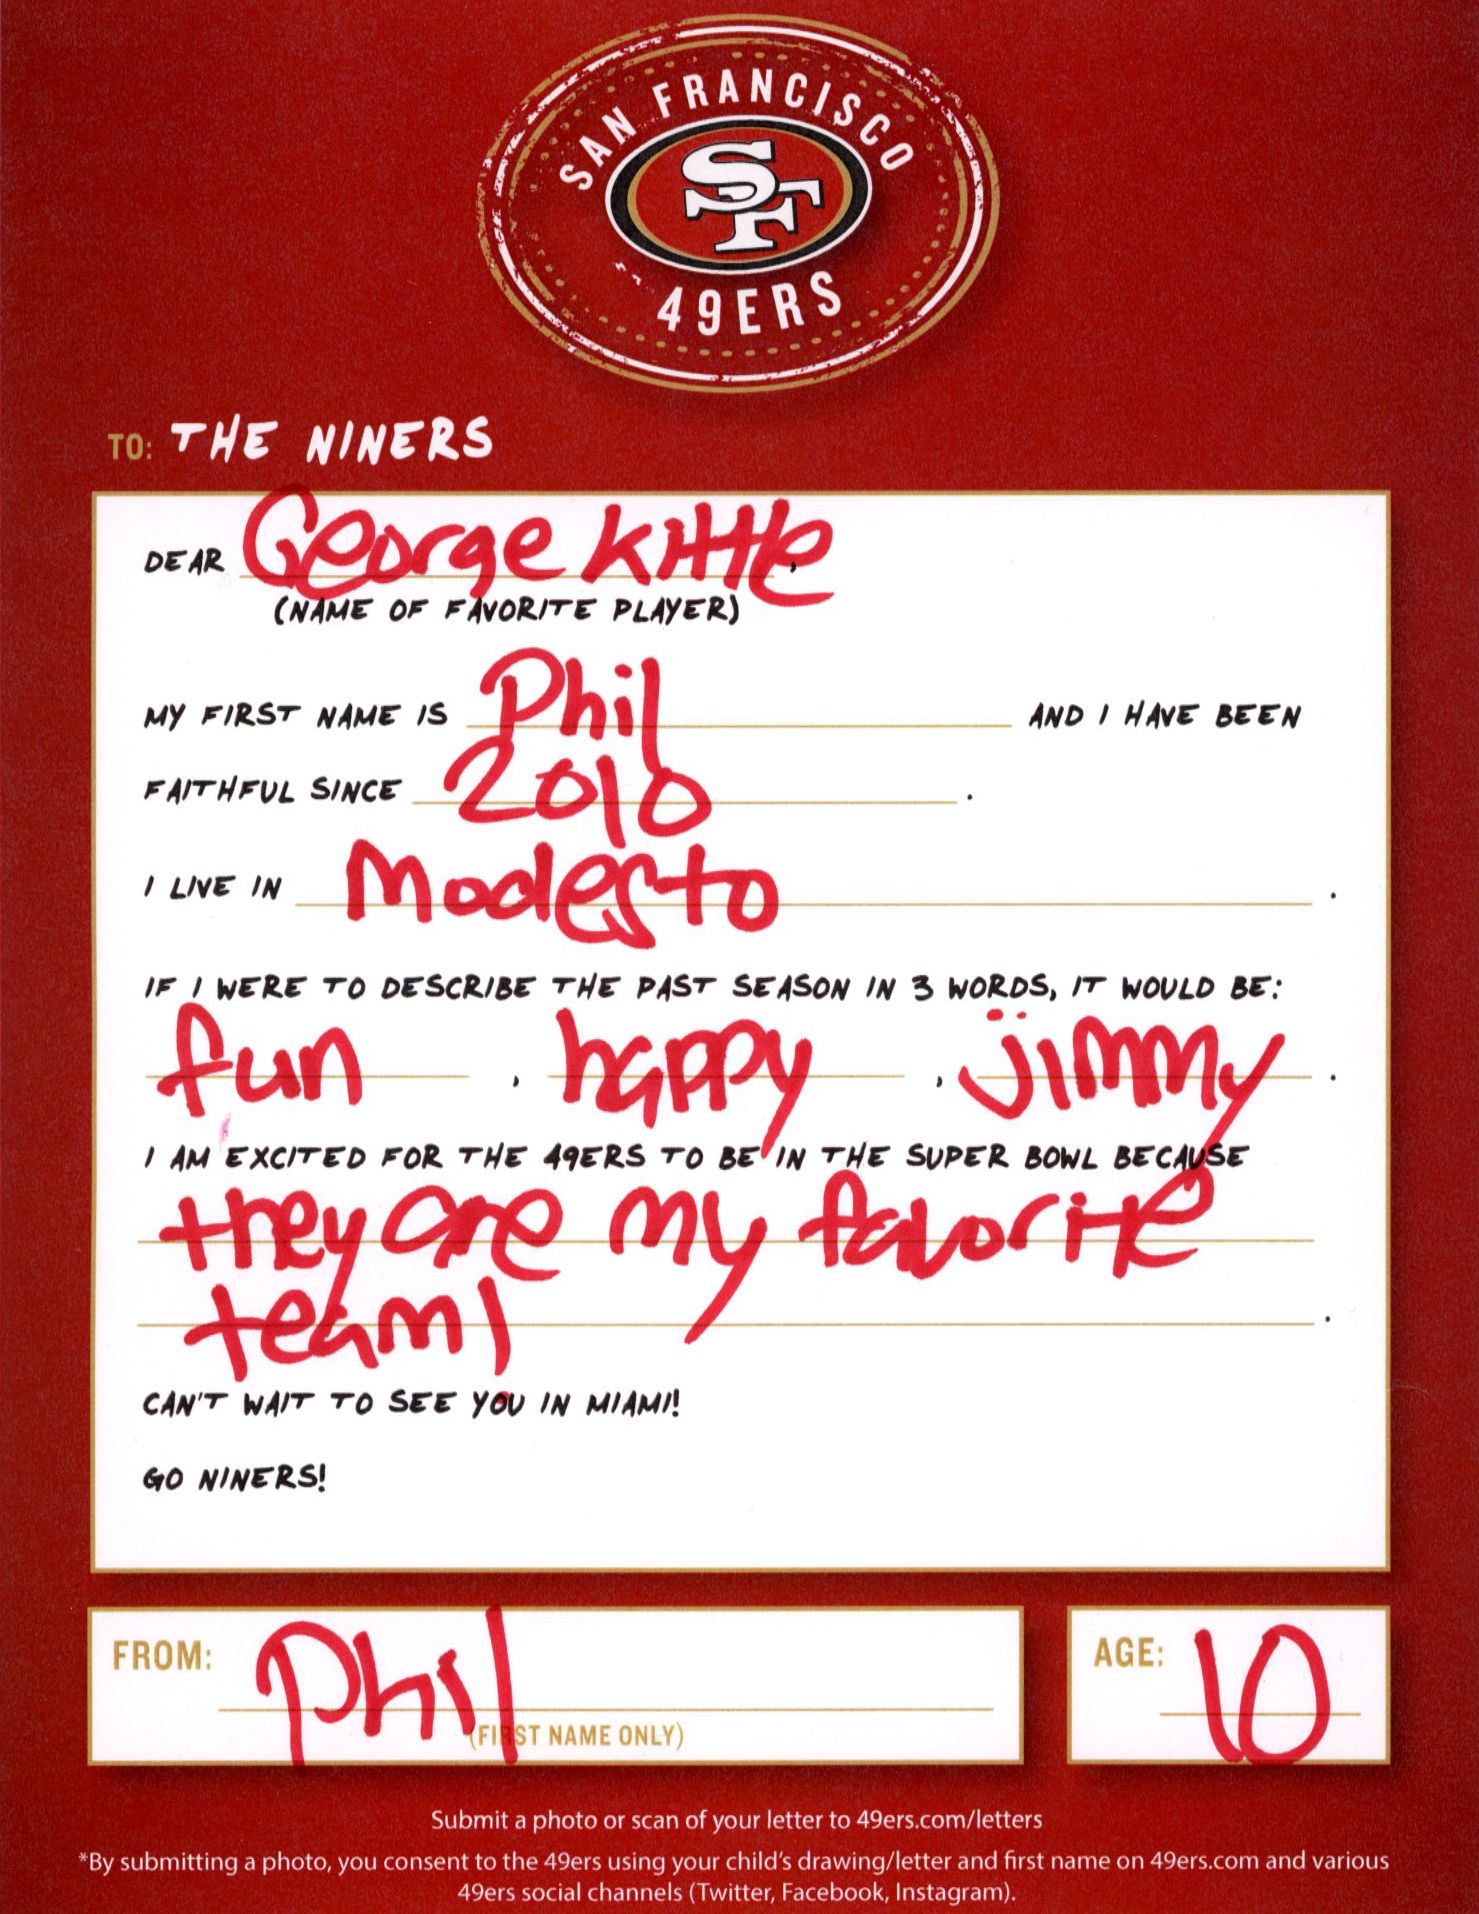 SAN FRANCISCO
SF
49ERS
TO: THE NINERS
DEAR George Kittle,
(NAME OF FAVORITE PLAYER)
MY FIRST NAME IS Phil AND I HAVE BEEN
FAITHFUL SINCE 2010.
I LIVE IN Modesto.
IF I WERE TO DESCRIBE THE PAST SEASON IN 3 WORDS, IT WOULD BE:
fun, happy, jimmy.
I AM EXCITED FOR THE 49ERS TO BE IN THE SUPER BOWL BECAUSE
they are my favorite
team!.
CAN'T WAIT TO SEE YOU IN MIAMI!
GO NINERS!
FROM: Phil
(FIRST NAME ONLY)
AGE: 10
Submit a photo or scan of your letter to 49ers.com/letters
*By submitting a photo, you consent to the 49ers using your child's drawing/letter and first name on 49ers.com and various
49ers social channels (Twitter, Facebook, Instagram).